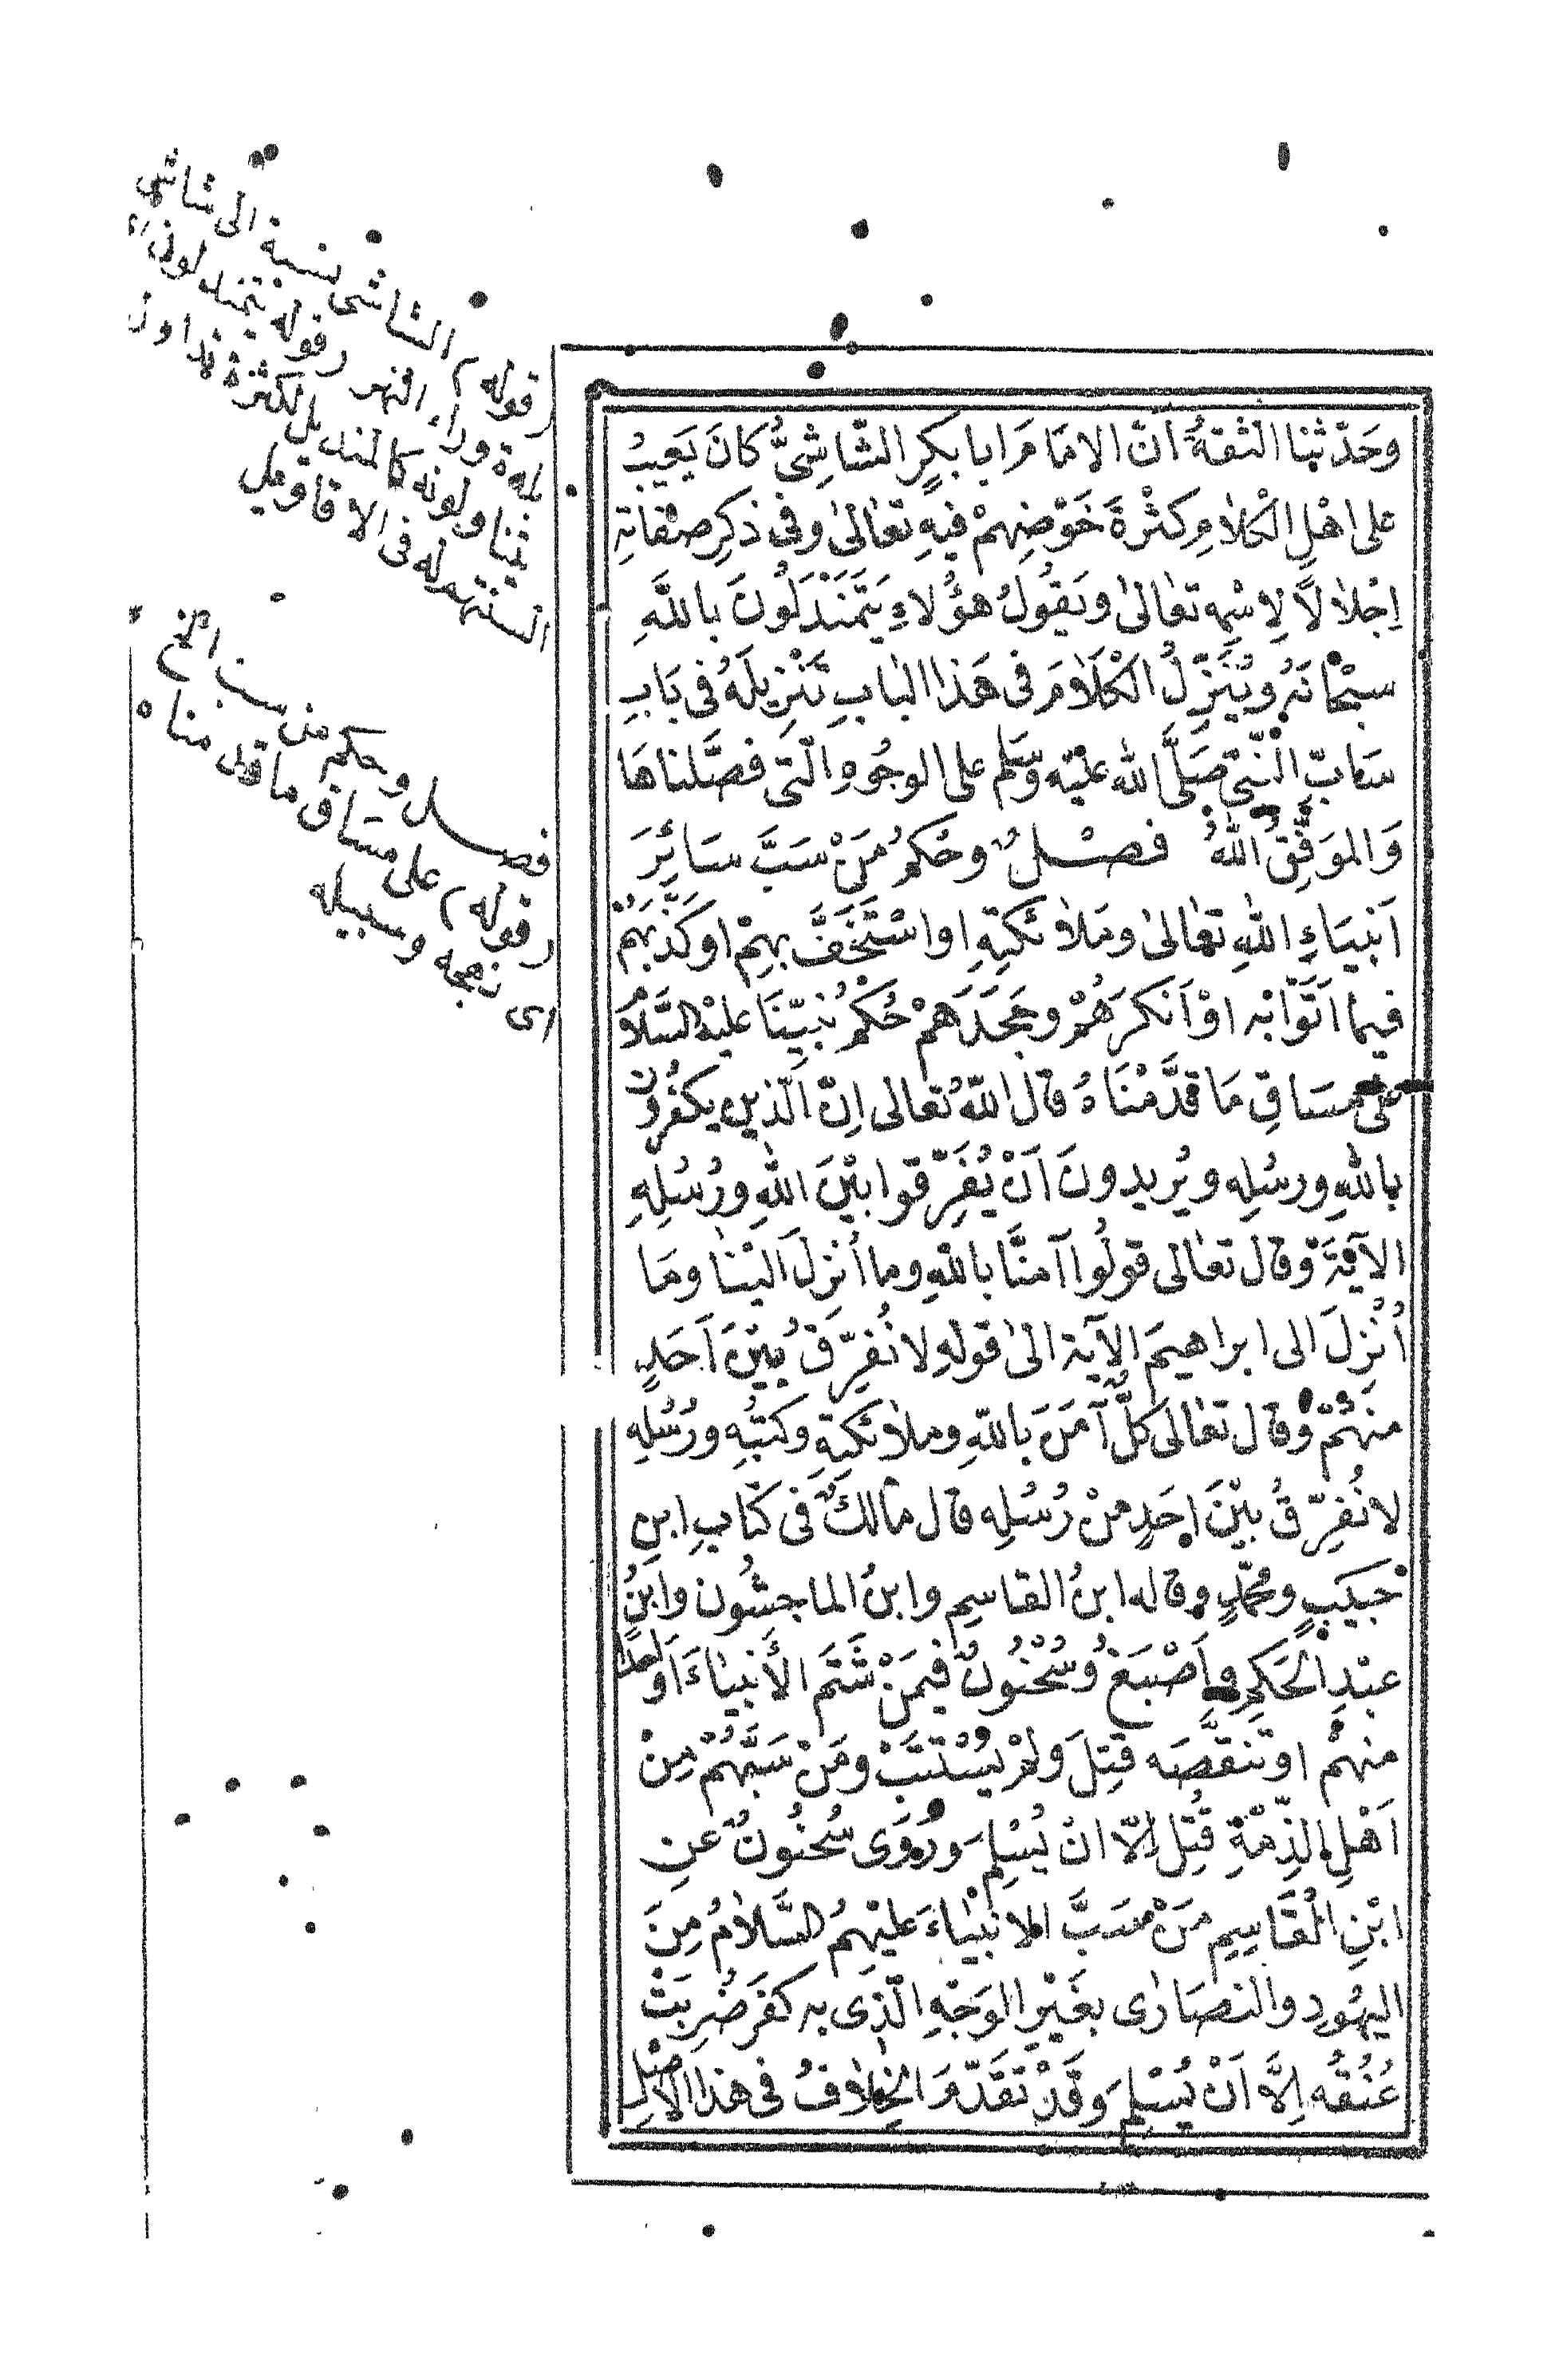 وَحَدَّثَنَا الثِّقَةُ أَنَّ الامَامَ ابا بكرٍ الشَّاشِىَّ كَانَ يَعِيبُ
على اهْلِ الْكلامِ كَثْرَةَ خَوْضِهِمْ فيهِ تعَالىٰ وفى ذكرِ صفاتِهِ
اِجْلالاً لِاسْمِهِ تعٰالىٰ ويَقُولُ هؤُلاءِ يَتَمَنْدَلُونَ باللّٰهِ
سبْحٰانَهُ ويُنَزِّلُ الْكَلَامَ فى هَذا البٰابِ تَنْزِيلَهُ فى بَابِ
سَابِّ النَّبِيّ صَلَّى اللّٰه عليْه وسَلم على الوجُوهِ الّتى فصَّلناهَا
وَالموَفِّقُ اللّٰهُ فصْـلٌ وحُكمُ مَنْ سَبَّ سَائِرَ
اَنبيَاءِ اللّٰهِ تعٰالىٰ ومَلائكتِهِ اواسْتَخَفَّ بهِمْ اوكَذَّبَهُمْ
فيما اَتَوْا بْه اوْ اَنكرَهُمْ وجَحَدَهمْ حُكمُ نَبيِّنَا عليْهِ السَّلامُ
على مسَاقِ مَا قدَّمْنَاهُ قال اللّٰهُ تعالى اِنّ الّذين يكفُرُون
باللّٰهِ ورسُلِه ويُريدونَ اَنْ يُفَرِّقوا بيْنَ اللّٰهِ ورُسُلِهِ
الآيَةَ وقال تعٰالى قولُوا آمنَّا باللّٰهِ وما اُنْزِلَ اليْنٰا ومَا
اُنْزِلَ الى ابراهيمَ الآية الىٰ قوْلِهِ لا نُفرّقُ بيْنَ اَحَدٍ
منهُمْ وقال تعٰالى كلٌّ آمَنَ باللّٰهِ وملائكتِهِ وكتبُهِ ورُسُلِهِ
لا نُفرّقُ بيْنَ احَدٍ منْ رُسُلِه قال مالكٌ فى كتَابِ ابنِ
حَبيبٍ ومحمّدٍ وقاله ابنُ القاسِمِ وابنُ الماجِشُون وابنُ
عبْدِ الحَكمِ واَصْبَغُ وسُحْنُونٌ فيمَنْ شَتَمَ الأَنبيٰاءَ اَوْ احَدًا
منهُمْ اوتنقَّصَه قتِلَ ولمْ يسْتتَبْ ومَنْ سَبَّهُمْ مِنْ
اَهْلِ الذِّمّةِ قُتِل اِلّا انْ يُسْلِمَ ورَوَى سُحنُونٌ عنِ
ابْنِ الْقَاسِمِ مَنْ سَبَّ الانبيٰاءَ عليْهِمُ السَّلامُ مِنَ
اليهُودِ والنصَارٰى بغَيْرِ الوَجْهِ الّذِى به كفَرَ ضُرِبَتْ
عُنُقُه اِلَّا اَنْ يُسْلِمَ وَقَدْ تقَدّمَ الخِلافُ فى هَذا الأَصْلِ
قوله الشاشى نسبة الى شاش
بلدة وراء النهر قوله يتمندلون اى
يتناولونه كالمنديل لكثرة تداول
السنتهم له فى الاقاويل
فصـل وحكم من سب الخ
قوله على مساق ما قدمناه
اى نهجه وسبيله